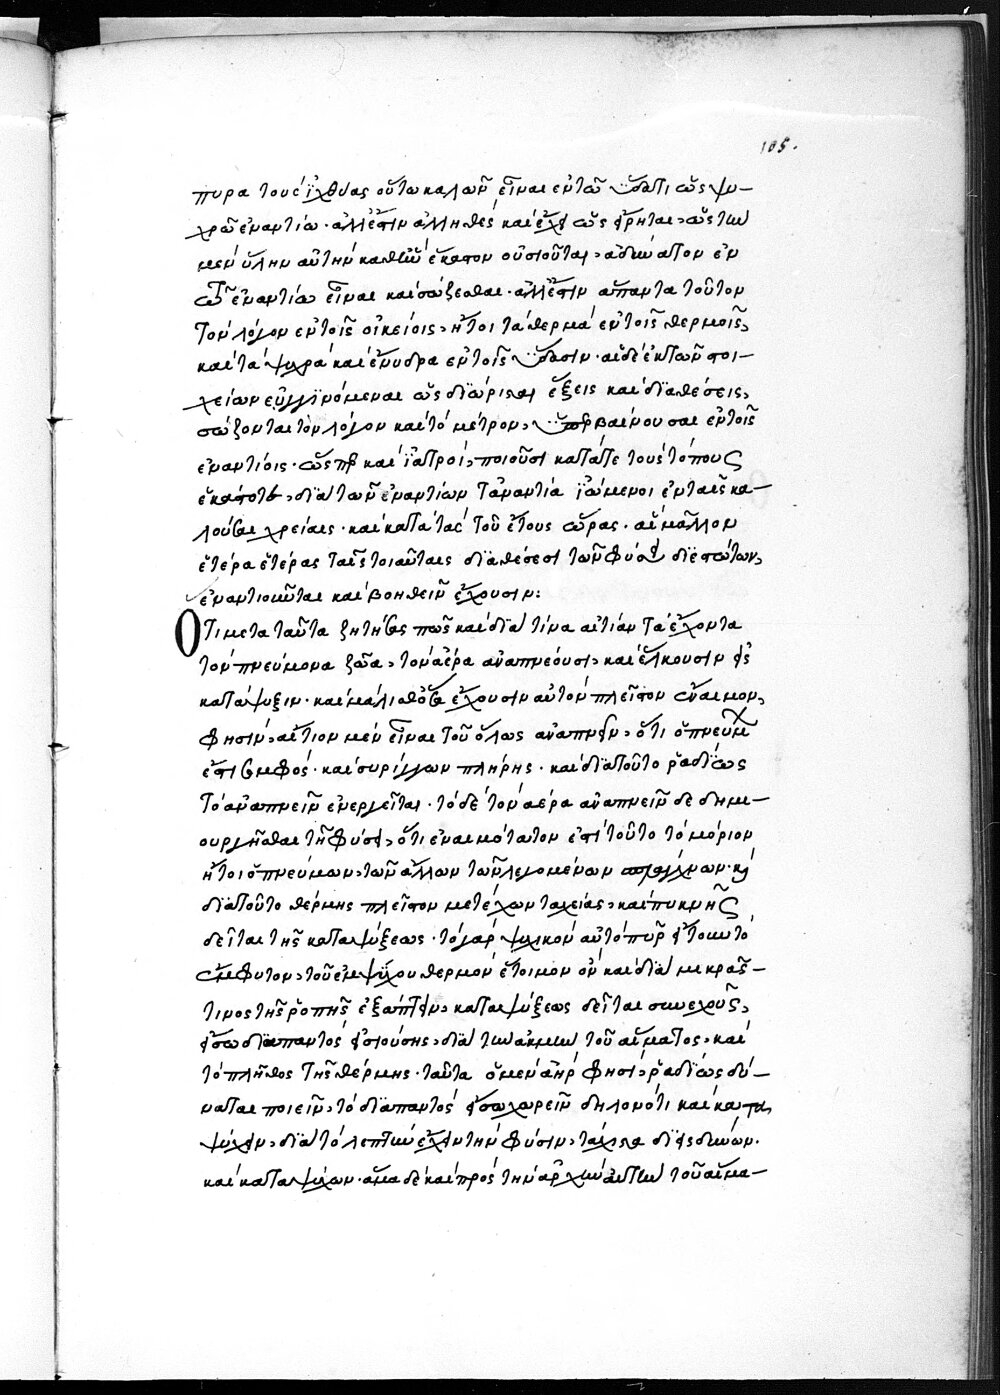 105.
πυρα τοὺς ἰχθύας οὕτω καλῶν εἶναι ἐν τῶ ὕδατι ὡς ψυ-
χρῶ ἐναντίω. ἀλλ' ἔστιν ἀληθὲς καὶ ἔχει ὡς εἴρηται, ὡς τὴν
μὲν ὕλην αὐτὴν καθ' ἣν ἕκαστον οὐσιοῦται, ἀδύνατον ἐν
τῶ ἐναντίω εἶναι καὶ σώζεσθαι. ἀλλ' ἔστιν ἅπαντα τοῦτον
τὸν λόγον ἐν τοῖς οἰκείοις, ἤτοι τὰ θερμὰ ἐν τοῖς θερμοῖς,
καὶ τὰ ψυχρὰ καὶ ἔνυδρα ἐν τοῖς ὕδασιν. αἱ δὲ ἐκ τῶν στοι-
χείων ἐγγινόμεναι ὡς διώρισται ἕξεις καὶ διαθέσεις,
σώζονται τὸν λόγον καὶ τὸ μέτρον, ὑπερβαίνουσαι ἐν τοῖς
ἐναντίοις. ὥσπερ καὶ ἰατροὶ, ποιοῦσι κατά τε τοὺς τόπους
ἑκάστοτε, διὰ τῶν ἐναντίων τἀναντία ἰώμενοι ἐν ταῖς κα-
λούσαις χρείαις. καὶ κατὰ τὰς τοῦ ἔτους ὥρας. αἳ μᾶλλον
ἑτέρα ἑτέρας ταῖς τοιαύταις διαθέσεσι τῶν φύσει διεστώτων,
ἐναντιοῦνται καὶ βοηθεῖν ἔχουσιν:
Ὅτι μετὰ ταῦτα ζητήσας πῶς καὶ διὰ τίνα αἰτίαν τὰ ἔχοντα
τὸν πνεύμονα ζῶα, τὸν ἀέρα ἀναπνέουσι, καὶ ἕλκουσιν εἰς
κατάψυξιν. καὶ μάλισθ' ὅσα ἔχουσιν αὐτὸν πλεῖστον ἔναιμον,
φησὶν, αἴτιον μὲν εἶναι τοῦ ὅλως ἀναπνεῖν, ὅτι ὁ πνεύμων
ἐστὶ σομφὸς. καὶ συρίγγων πλήρης. καὶ διὰ τοῦτο ῥαδίως
τὸ ἀναπνεῖν ἐνεργεῖται. τὸ δὲ τὸν ἀέρα ἀναπνεῖν δεδημι-
ουργῆσθαι τῆ φύσει, ὅτι ἐναιμότατον ἐστὶ τοῦτο τὸ μόριον
ἤτοι ὁ πνεύμων, τῶν ἄλλων τῶν λεγομένων σπλάγχνων. καὶ
διὰ τοῦτο θέρμης πλεῖστον μετέχων ταχείας, καὶ πυκνῆς
δεῖται τῆς καταψύξεως. τὸ γὰρ ψυχικὸν αὐτὸ πῦρ ἤτοι τὸ
σύμφυτον, τοῦ ἐμψύχου θερμὸν ἕτοιμον ὂν καὶ διὰ μικρᾶς
τινος τῆς ῥοπῆς ἐξάπτειν, καταψύξεως δεῖται συνεχοῦς,
εἴσω διαπαντὸς εἰσιούσης, διὰ τὴν ἀκμὴν τοῦ αἵματος, καὶ
τὸ πλῆθος τῆς θέρμης. ταῦτα ὁ μὲν ἀὴρ φησὶ, ῥαδίως δύ-
ναται ποιεῖν, τὸ διαπαντὸς εἰσχωρεῖν δηλονότι καὶ κατα-
ψύχειν, διὰ τὸ λεπτὴν ἔχειν τὴν φύσιν, τάχιστα διεισδύνων.
καὶ καταψύχων. ἅμα δὲ καὶ πρὸς τὴν ἀρχὴν αὐτὴν τοῦ αἵμα-